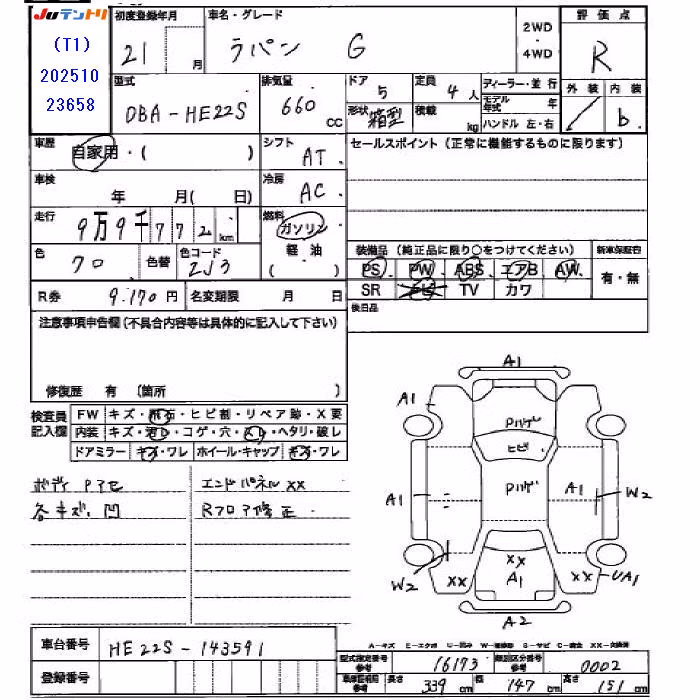 JUテントリ
(T1)
202510
23658
初度登録年月
21 月
車名・グレード
ラパン G
2WD
・
4WD
評価点
R
型式
DBA-HE22S
排気量
660 cc
ドア 5
形状 箱型
定員 4 人
積載 kg
ディーラー・並行
モデル年式 年
ハンドル 左・右
外装 内装
b.
車歴 自家用・( )
シフト AT.
セールスポイント(正常に機能するものに限ります)
車検 年 月( 日)
冷房 AC.
走行 9万9千772 km
燃料 ガソリン
軽油
( )
色 クロ. 色替 色コード 2J3
装備品(純正品に限り○をつけてください) 新車保証書
PS. PW ABS. エアB AW.
SR ナビ TV カワ
有・無
R券 9.170円 名変期限 月 日
後日品
注意事項申告欄(不具合内容等は具体的に記入して下さい)
修復歴 有 (箇所 )
検査員記入欄
FW キズ・飛石・ヒビ割・リペア跡・X要
内装 キズ・汚レ・コゲ・穴・スレ・ヘタリ・破レ
ドアミラー キズ・ワレ ホイール・キャップ キズ・ワレ
ボディ Pアセ
各キズ.凹
エンドパネル XX
Rフロア修正
A1
A1
Pハゲ
ヒビ
A1
Pハゲ
A1
W2
W2
XX
XX
A1
XX
UA1
A2
車台番号 HE22S-143591
登録番号
A-キズ E-エクボ U-凹み W-補修跡 S-サビ C-腐食 XX-交換済
型式指定番号 参考 16173 類別区分番号 参考 0002
車庫証明用 参考 長さ 339 cm 幅 147 cm 高さ 151 cm